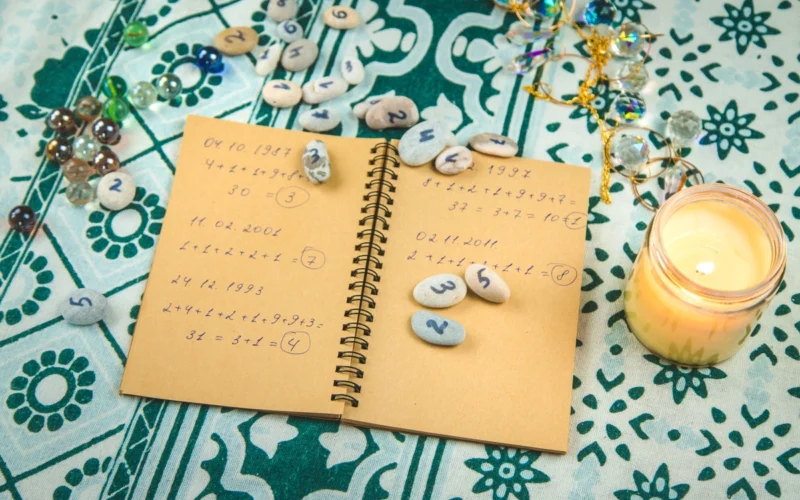 6
2
2
4
2
3
04.10 1987
4+1+1+9+8+
30 = 3
11.02.2001
1+1+2+2+1 = 7
24.12.1993
2+4+1+2+1+9+9+3=
31 = 3+1 = 4
1997
8+1+2+1+9+9+7=
37 = 3+7 = 10=1
02.11.2011
2+1+1+1+1=8
3
5
2
2
5